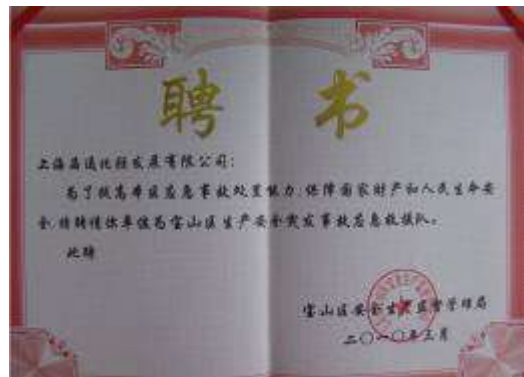 聘书
上海昌通化轻发展有限公司:
为了提高本区应急事故处置能力,保障国家财产和人民生命安
全,特聘请你单位为宝山区生产安全突发事故应急救援队。
此聘
宝山区安全生产监督管理局
二〇一〇年三月